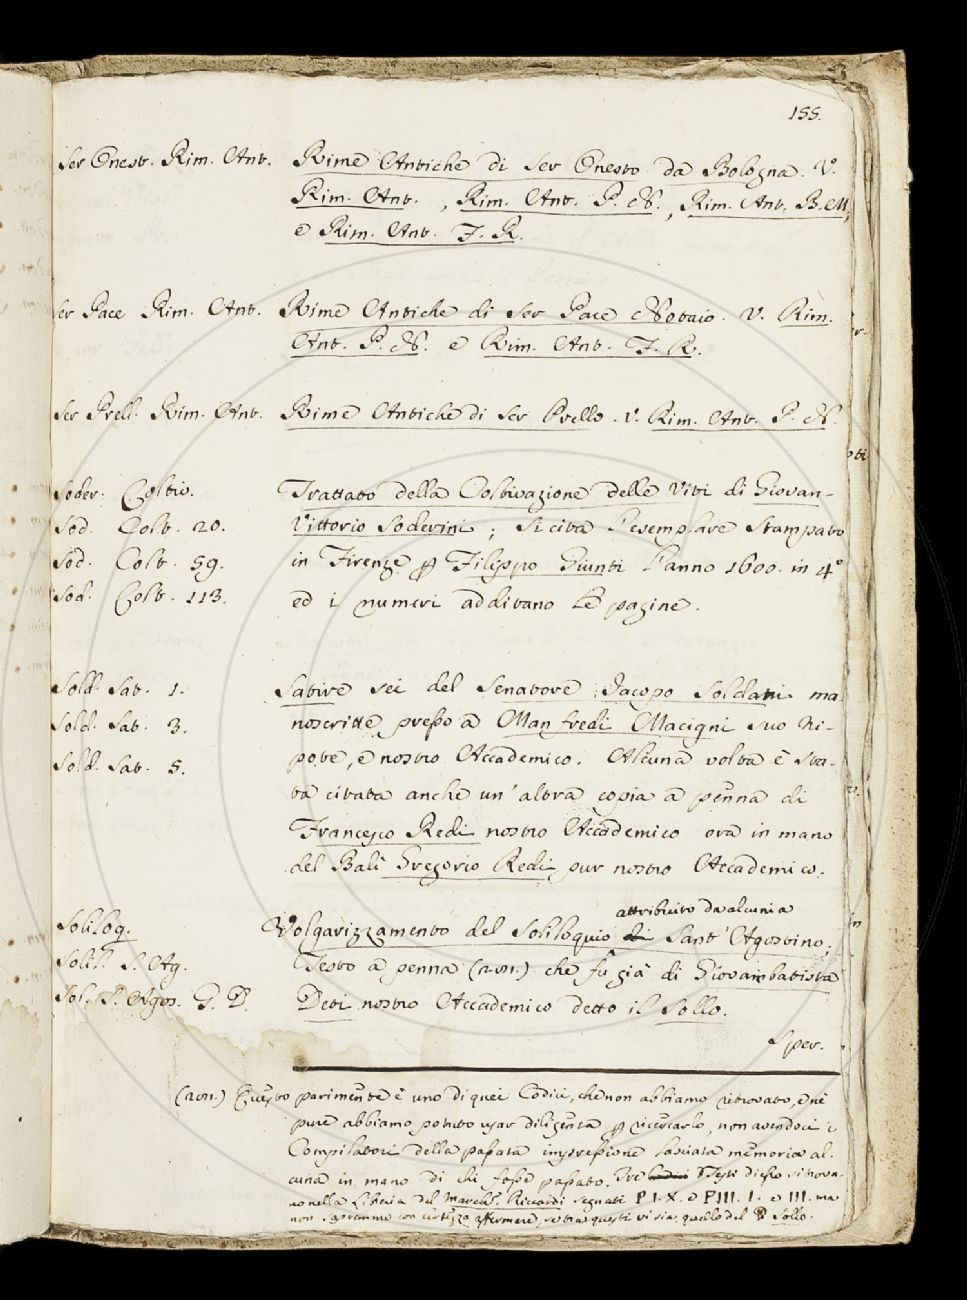 155.
Ser Onest. Rim. Ant. Rime Antiche di Ser Onesto da Bologna. V.
Rim. Ant. , Rim. Ant. P. N. , Rim. Ant. B. M,
e Rim. Ant. F. R.
Ser Pace Rim. Ant. Rime Antiche di Ser Pace Notaio. V. Rim.
Ant. P. N. e Rim. Ant. F. R.
Ser Prell. Rim. Ant. Rime Antiche di Ser Prello. V. Rim. Ant. P. N.
Soder. Coltiv. Trattato della Coltivazione delle Viti di Giovan-
Sod. Colt. 20. Vittorio Soderini; Si cita l'esemplare stampato
Sod. Colt. 59. in Firenze p Filippo Giunti l'anno 1600. in 4°
Sod. Colt. 113. ed i numeri additano le pagine.
Sold. Sat. 1. Satire sei del Senatore Jacopo Soldani ma
Sold. Sat. 3. noscritte presso a Manfredi Macigni suo Ni-
Sold. Sat. 5. pote, e nostro Accademico. Alcuna volta è sta-
ta citata anche un'altra copia a penna di
Francesco Redi nostro Accademico ora in mano
del Balì Gregorio Redi pur nostro Accademico.
attribuito da alcuni a
Soliloq. Volgarizzamento del Soliloquio di Sant'Agostino;
Solil. S. Ag. Testo a penna (201.) che fù già di Giovambatista
Sol. S. Agos. G. D. Deti nostro Accademico detto il Sollo.
Sper.
(201.) Questo parimente è uno di quei Codici, che non abbiamo ritrovato, e nè
pure abbiamo potuto usar diligenza p ricercarlo, non avendoci i
Compilatori della passata impressione lasciata memoria al-
cuna in mano di chi fosse passato. Tre Testi di esso si trova-
no nella Libreria del March. Riccardi segnati P. I. X. e P. III. I. e III. ma
non sapremmo con certezza affermare, se tra questi vi sia quello del Sollo.